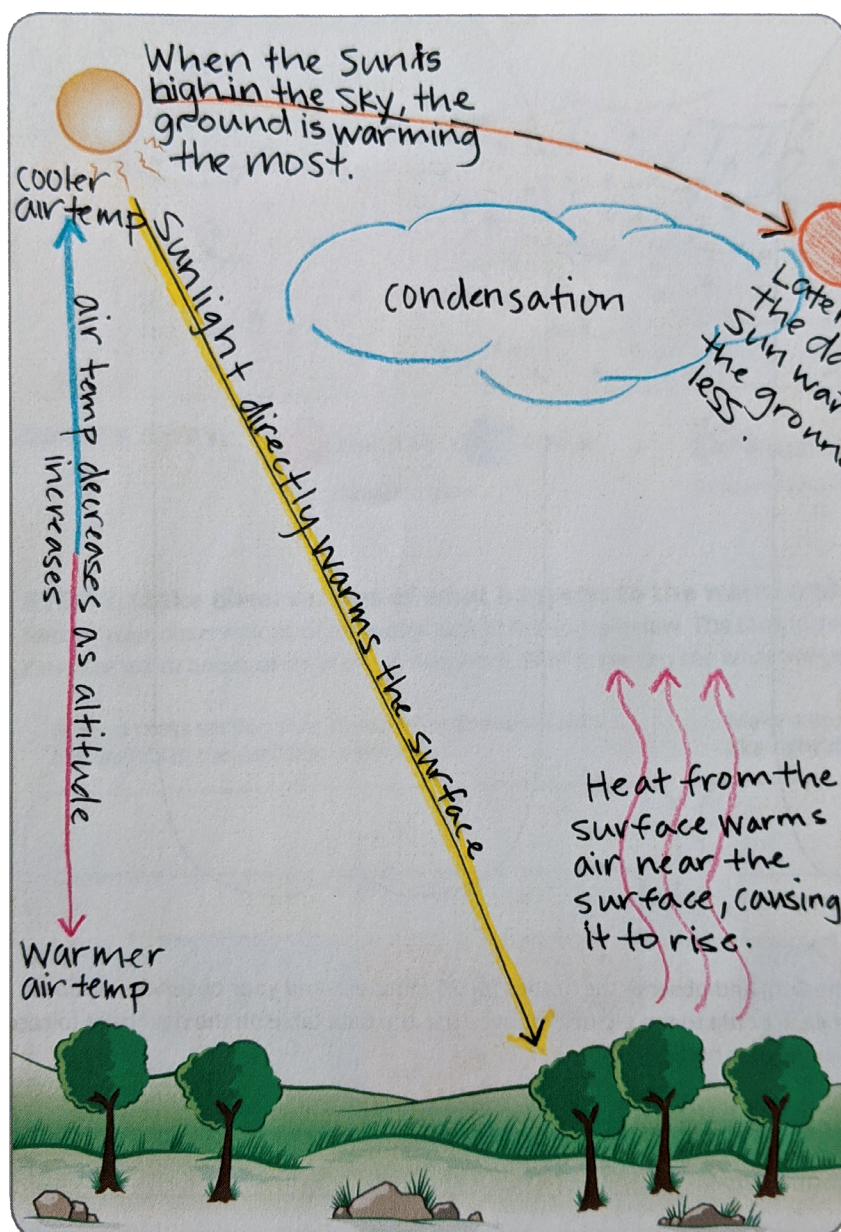 When the Sun is
high in the sky, the
ground is warming
the most.
cooler
air temp
air temp decreases as altitude
increases
Warmer
air temp
Sunlight directly warms the surface
condensation
Later
the da
Sun war
the ground
less.
Heat from the
surface warms
air near the
surface, causing
it to rise.